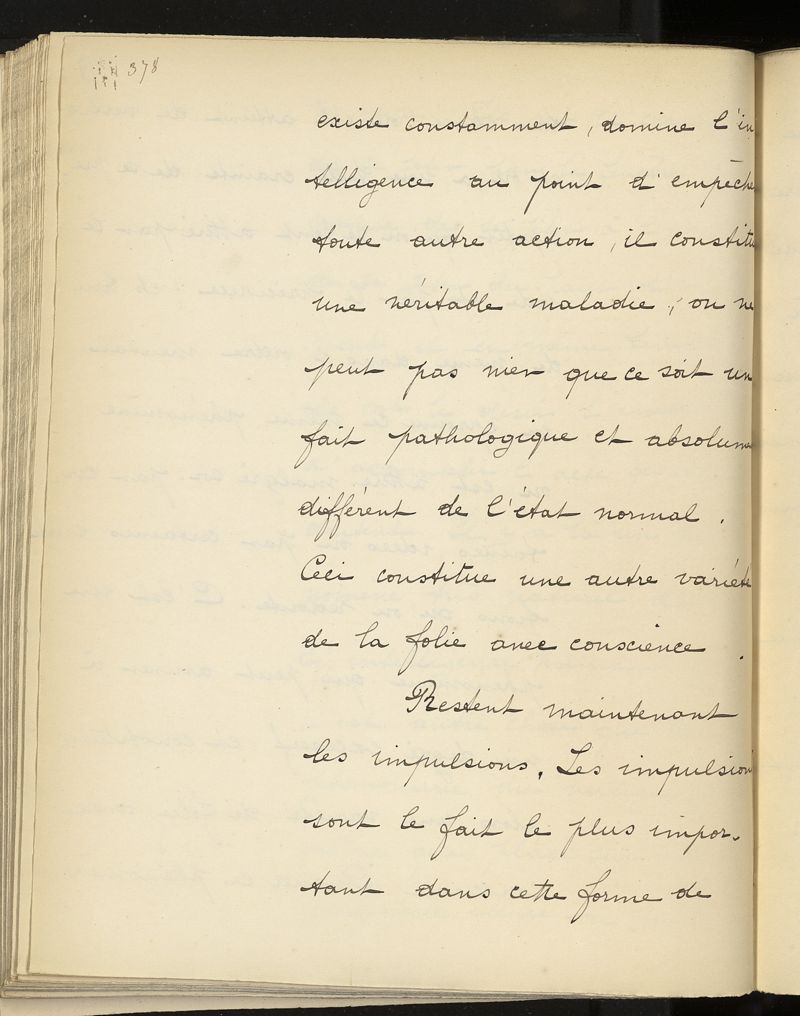 378
existe constamment, domine l'in
telligence au point d'empêche
toute autre action, il constitu
une véritable maladie ; on ne
peut pas nier que ce soit un
fait pathologique et absolume
différent de l'état normal.
Ceci constitue une autre variété
de la folie avec conscience.
Restent maintenant
les impulsions. Les impulsion
sont le fait le plus impor-
tant dans cette forme de